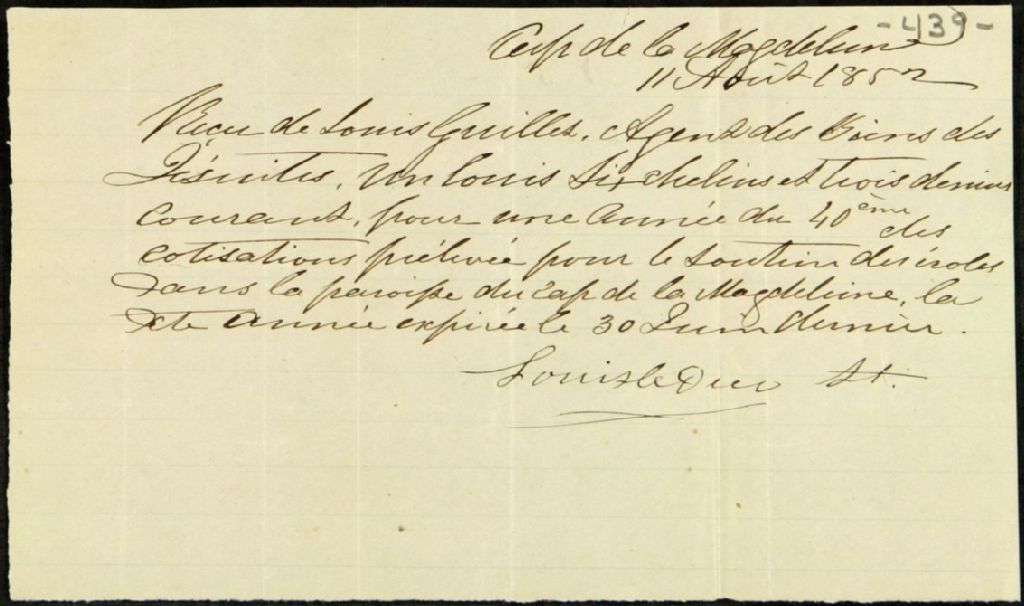 -439-
Cap de la Magdeleine
11 Août 1852
Recu de Louis Guillet, Agent des Biens des
Jésuites, Un louis six chelins et trois deniers
courant, pour une année du 40ème des
cotisations prélevée pour le soutien des écoles
dans la paroisse du Cap de la Magdeleine, la
dte année expirée le 30 Juin dernier.
Louis le Duc St.